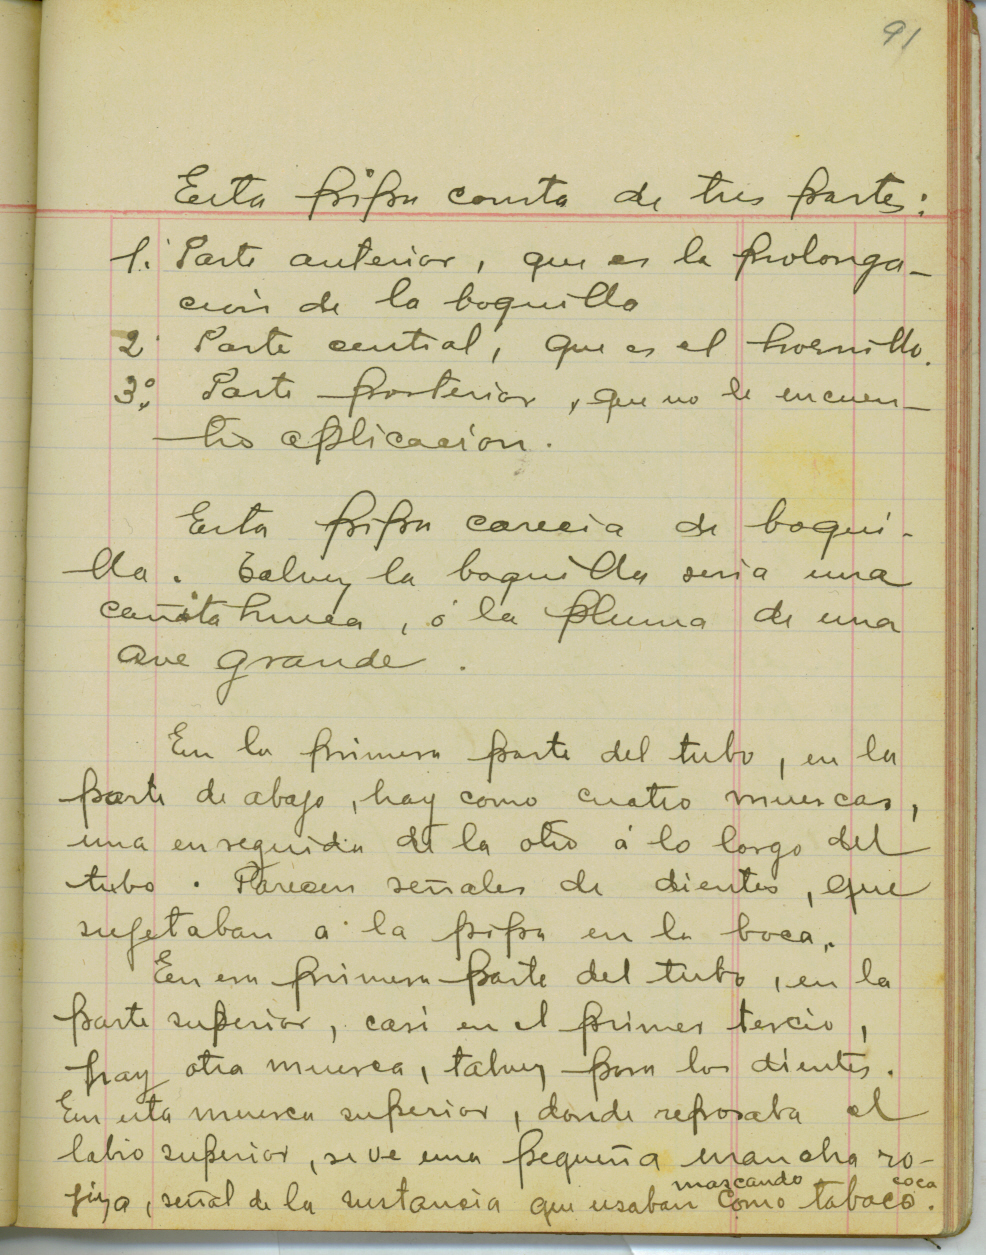 91
Esta pipa consta de tres partes:
1.° Parte anterior, que es la prolonga-
ción de la boquilla
2° Parte central, que es el hornillo.
3.° Parte posterior, que no le encuen-
tro aplicación.
Esta pipa carecía de boqui-
lla. Talvez la boquilla sería una
cañita hueca, ó la pluma de una
ave grande.
En la primera parte del tubo, en la
parte de abajo, hay como cuatro muescas,
una en seguida de la otra á lo largo del
tubo. Parecen señales de dientes, que
sujetaban a la pipa en la boca.
En esa primera parte del tubo, en la
parte superior, casi en el primer tercio,
hay otra muesca, talvez para los dientes.
En esta muesca superior, donde reposaba el
labio superior, se ve una pequeña mancha ro-
jiza, señal de la sustancia que usaban como tabaco.
mascando coca